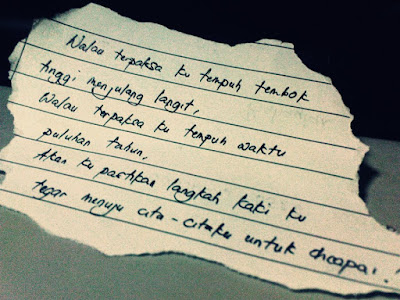 Walau terpaksa ku tempuh tembok
tinggi menjulang langit,
Walau terpaksa ku tempuh waktu
puluhan tahun,
Akan ku pastikan langkah kaki ku
tegar menuju cita-citaku untuk dicapai!